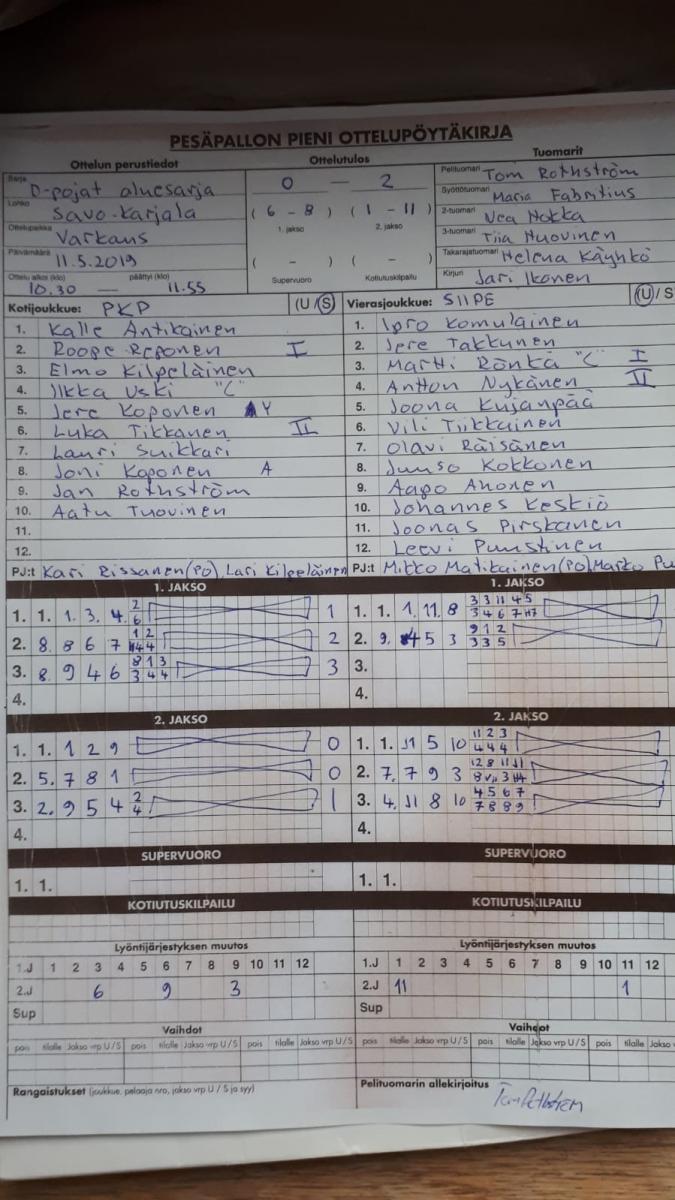 PESÄPALLON PIENI OTTELUPÖYTÄKIRJA
Ottelun perustiedot Ottelutulos Tuomarit
Sarja D-pojat aluesarja
Lohko Savo-Karjala
Ottelupaikka Varkaus
Päivämäärä 11.5.2019
Ottelu alkoi (klo) päättyi (klo)
10.30 — 11.55
0 — 2
( 6 - 8 ) ( 1 - 11 )
1. jakso 2. jakso
( - ) ( - )
Supervuoro Kotiutuskilpailu
Pelituomari Tom Rothström
Syöttötuomari Maria Fabritius
2-tuomari Nea Hokka
3-tuomari Tiia Nuovinen
Takarajatuomari Helena Käyhkö
Kirjuri Jari Ikonen
Kotijoukkue: PKP (U/S)
1. Kalle Antikainen
2. Roope Reponen I
3. Elmo Kilpeläinen
4. Ilkka Uski "C"
5. Jere Koponen Y
6. Luka Tikkanen II
7. Lauri Suikkari
8. Joni Koponen A
9. Jan Rothström
10. Aatu Tuovinen
11.
12.
PJ:t Kari Rissanen(PO), Lari Kilpeläinen
Vierasjoukkue: SIIPE (U/S
1. Iiro Komulainen
2. Jere Takkunen
3. Martti Rönkä "C" I
4. Antton Nykänen II
5. Joona Kujanpää
6. Vili Tiikkainen
7. Olavi Räisänen
8. Juuso Kokkonen
9. Aapo Ahonen
10. Johannes Keskiö
11. Joonas Pirskanen
12. Leevi Puustinen
PJ:t Mikko Matikainen(PO), Marko Pu
1. JAKSO
1. 1. 1. 3. 4. 2 6 1
2. 8. 8 6 7 2
3. 8. 9 4 6 8 1 3 3 4 4 3
4.
1. JAKSO
1. 1. 1. 11. 8 3 3 11 4 5
2. 9. 4 5 3 9 1 2 3 3 5
3.
4.
2. JAKSO
1. 1. 1 2 9 0
2. 5. 7 8 1 0
3. 2. 9 5 4 2 4 1
4.
2. JAKSO
1. 1. 11 5 10 11 2 3 4 4 4
2. 7. 7 9 3
3. 4. 11 8 10 4 5 6 7 7 8 8 9
4.
SUPERVUORO
1. 1.
SUPERVUORO
1. 1.
KOTIUTUSKILPAILU
KOTIUTUSKILPAILU
Lyöntijärjestyksen muutos
1.J 1 2 3 4 5 6 7 8 9 10 11 12
2.J 6 9 3
Sup
Lyöntijärjestyksen muutos
1.J 1 2 3 4 5 6 7 8 9 10 11 12
2.J 11 1
Sup
Vaihdot
pois tilalle Jakso vrp U/S pois tilalle Jakso vrp U/S pois tilalle Jakso vrp U/S
Vaihdot
pois tilalle Jakso vrp U/S pois tilalle Jakso vrp U/S pois tilalle Jakso
Rangaistukset (joukkue, pelaaja nro, jakso vrp U/S ja syy)
Pelituomarin allekirjoitus